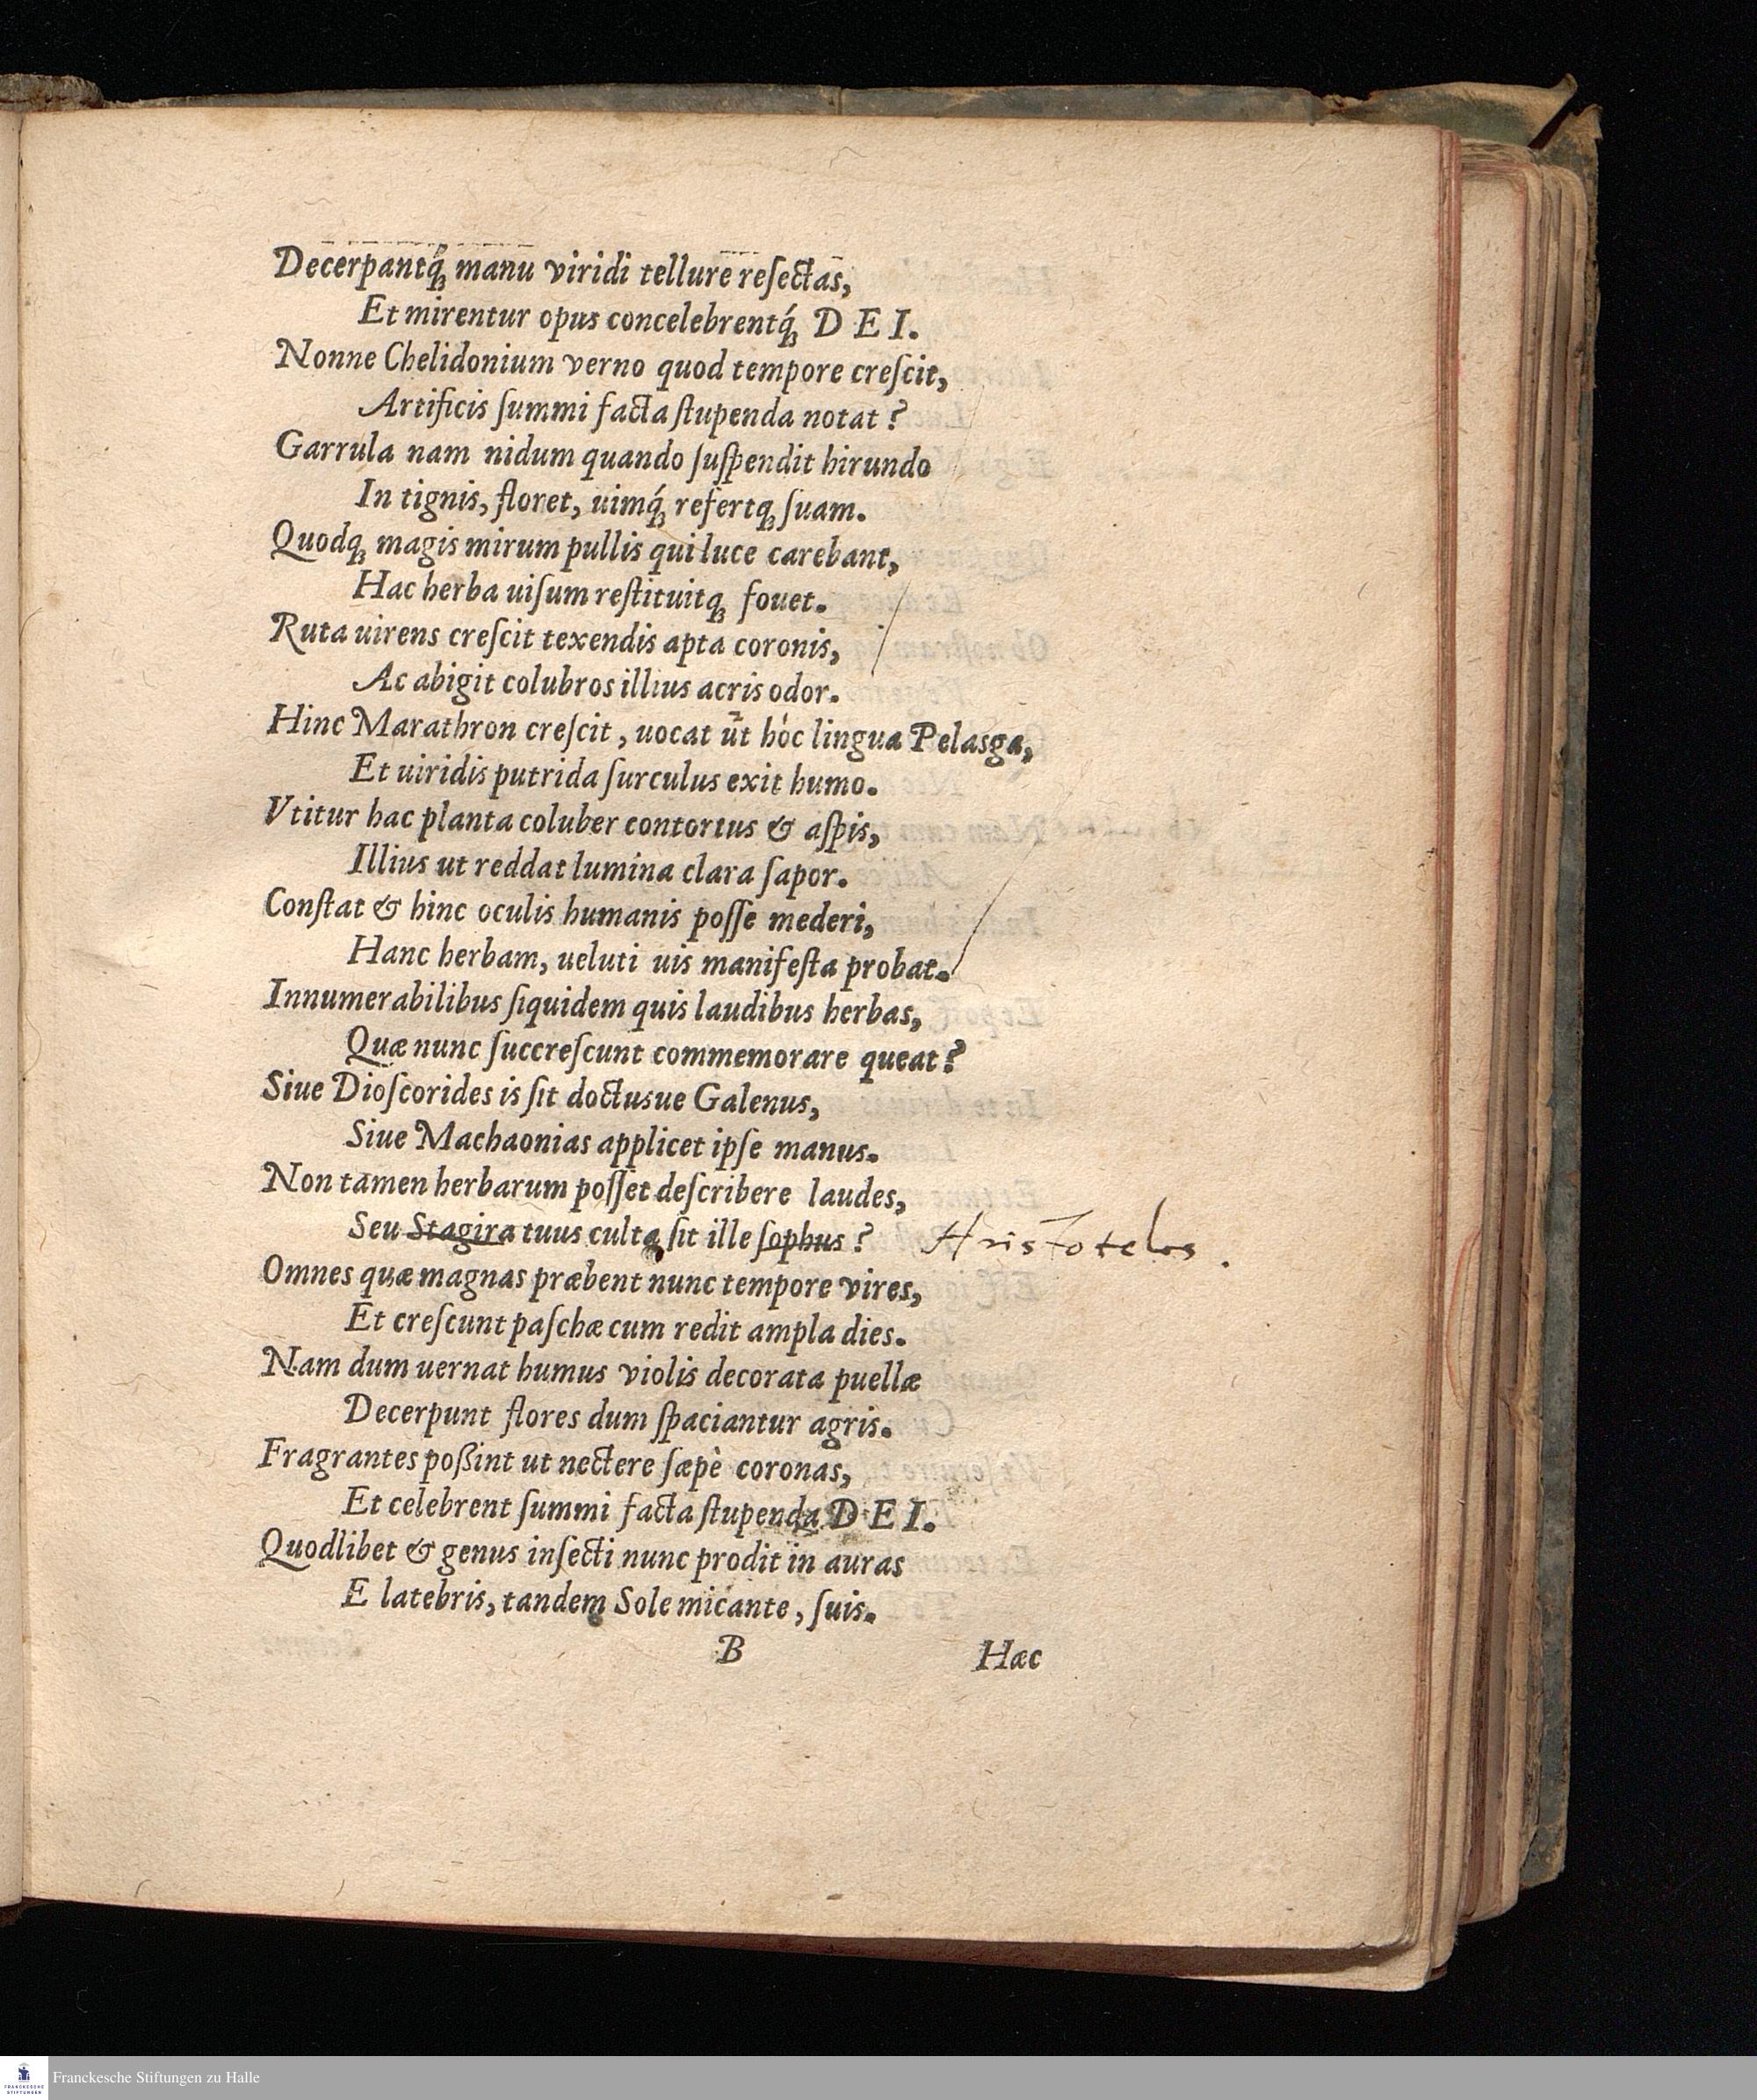 Decerpantq́; manu viridi tellure reſectas,
Et mirentur opus concelebrentq́; D E I.
Nonne Chelidonium verno quod tempore creſcit,
Artificis ſummi facta ſtupenda notat?
Garrula nam nidum quando ſuſpendit hirundo
In tignis, floret, uimq́; refertq; ſuam.
Quodq; magis mirum pullis qui luce carebant,
Hac herba uiſum reſtituitq; fouet.
Ruta uirens creſcit texendis apta coronis,
Ac abigit colubros illius acris odor.
Hinc Marathron creſcit, uocat ut hoc lingua Pelasga,
Et uiridis putrida ſurculus exit humo.
Vtitur hac planta coluber contortus & aſpis,
Illius ut reddat lumina clara ſapor.
Conſtat & hinc oculis humanis poſſe mederi,
Hanc herbam, ueluti uis manifeſta probat.
Innumerabilibus ſiquidem quis laudibus herbas,
Quæ nunc ſuccreſcunt commemorare queat?
Siue Dioſcorides is ſit doctusue Galenus,
Siue Machaonias applicet ipſe manus.
Non tamen herbarum poſſet deſcribere laudes,
Seu Stagira tuus culta ſit ille ſophus? Aristoteles.
Omnes quæ magnas præbent nunc tempore vires,
Et creſcunt paſchæ cum redit ampla dies.
Nam dum uernat humus violis decorata puellæ
Decerpunt flores dum ſpaciantur agris.
Fragrantes poßint ut nectere ſæpè coronas,
Et celebrent ſummi facta ſtupenda D E I.
Quodlibet & genus inſecti nunc prodit in auras
E latebris, tandem Sole micante, ſuis.
B Hæc
Franckesche Stiftungen zu Halle
FRANCKESCHE
STIFTUNGEN